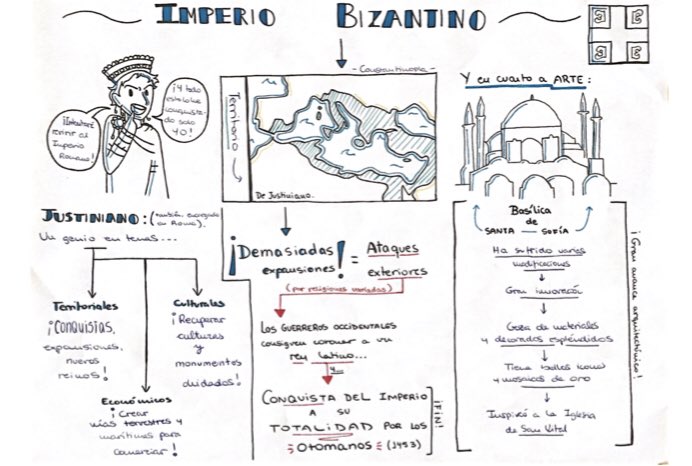 IMPERIO BIZANTINO
- Constantinopla -
¡Intentaré
revivir el
Imperio
Romano!
¡Y todo
esto lo he
conquista-
do solo
YO!
Territorio
De Justiniano.
Y en cuanto a ARTE:
JUSTINIANO:
en Roma).
Un genio en temas...
Territoriales
¡Conquistas,
expansiones,
nuevos
reinos!
Culturales
¡Recuperar
culturas
y
monumentos
olvidados!
Económicos
¡Crear
vías terrestres y
marítimas para
comerciar!
¡Demasiadas
expansiones! = Ataques
exteriores
(por religiones variadas)
LOS GUERREROS OCCIDENTALES
consiguen coronar a un
rey latino...
y...
CONQUISTA DEL IMPERIO
A SU
TOTALIDAD POR LOS
OTOMANOS (1453)
¡FIN!
Basílica
de
SANTA SOFÍA
Ha sufrido varias
modificaciones
Gran innovación
de materiales
y decorados espléndidos
Tiene bellos iconos
y mosaicos de oro
Inspiró a la Iglesia
de San Vital
¡Gran avance arquitectónico!